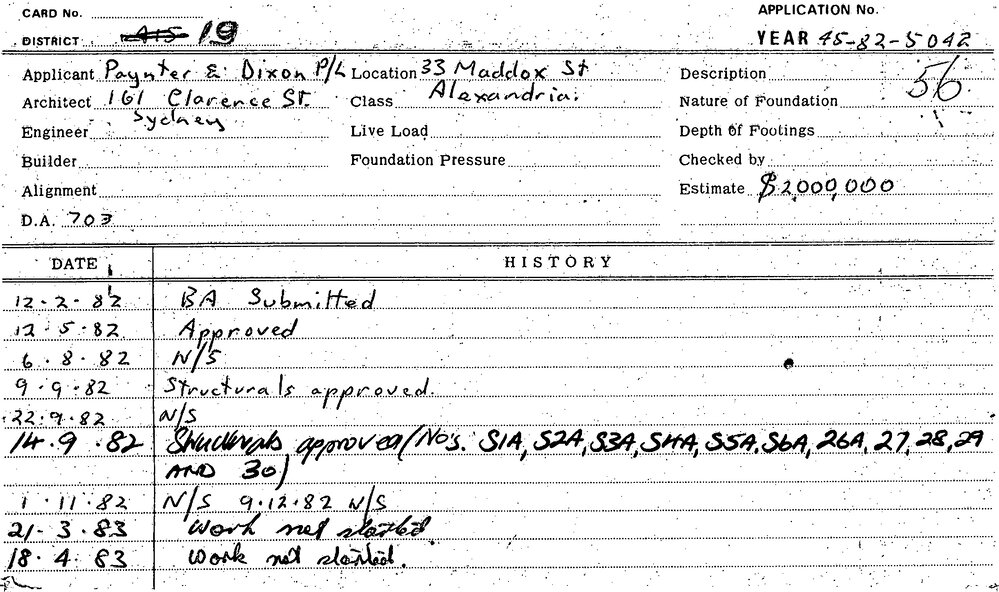 CARD No.
APPLICATION No.
DISTRICT 415 19
YEAR 45-82-5042
Applicant Paynter & Dixon P/L Location 33 Maddox St Description 56
Architect 161 Clarence St. Class Alexandria. Nature of Foundation
Sydney
Engineer Live Load Depth of Footings
Builder Foundation Pressure Checked by
Alignment Estimate $2,000,000
D.A. 703
DATE HISTORY
12.2.82 BA Submitted
12.5.82 Approved
6.8.82 N/S
9.9.82 Structurals approved.
22.9.82 N/S
14.9.82 Structurals approved (No's. S1A, S2A, S3A, S4A, S5A, S6A, 26A, 27, 28, 29
AND 30)
1.11.82 N/S 9.12.82 N/S
21.3.83 Work not started.
18.4.83 Work not started.